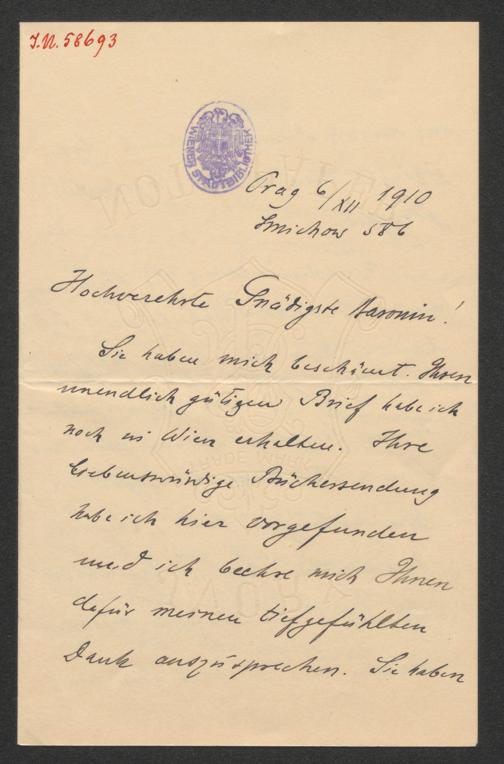 J.N. 58693
WIENER STADTBIBLIOTHEK
Prag 6/XII 1910
Smichow 586
Hochverehrte Gnädigste Baronin!
Sie haben mich beschämt. Ihren
unendlich gütigen Brief habe ich
noch in Wien erhalten. Ihre
liebenswürdige Büchersendung
habe ich hier vorgefunden
und ich beehre mich Ihnen
dafür meinen tiefgefühlten
Dank auszusprechen. Sie haben